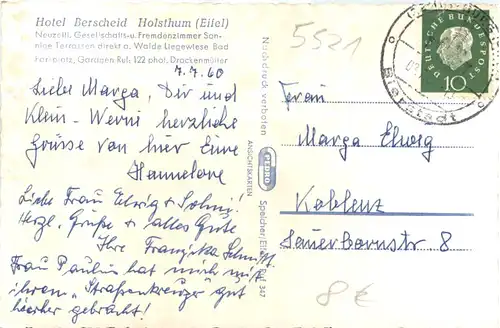 Hotel Berscheid Holsthum (Eifel)
Neuzeitl. Gesellschafts-u. Fremdenzimmer Son-
nige Terrassen direkt a. Walde Liegewiese Bad
Parkplatz, Garagen Ruf: 122 phot. Drackenmüller
7.7.60
Liebe Marga, Dir und
Klein-Werni herzliche
Grüsse von hier Eure
Hannelore
Liebe Frau Elwig & Sohni!
Herzl. Grüße & alles Gute
Ihre Franziska Schmitt
Frau Paulus hat mich mit
ihrem "Straßenkreuzer" gut
hierher gebracht!
Nachdruck verboten
ANSICHTSKARTEN
Speicher/Eifel
347
5521
DEUTSCHE BUNDESPOST
10
Bierstadt
Frau
Marga Elwig
Koblenz
Sauerbornstr 8
8 €